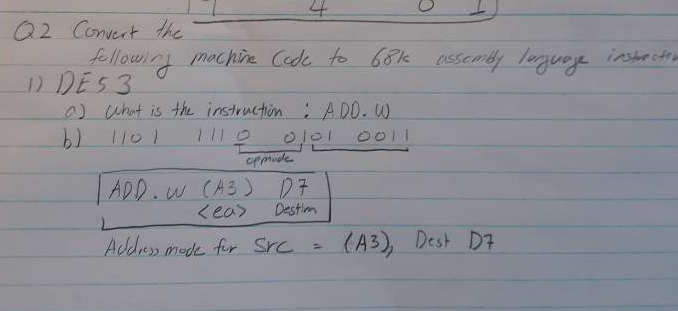 4 0 1
Q2 Convert the
following machine Code to 68k assembly language
1) DE53
a) What is the instruction : ADD.W
b) 1101 1110 0101 0011
opmode
ADD.W (A3) D7
<ea> Destinn
Address mode for Src = (A3), Dest D7